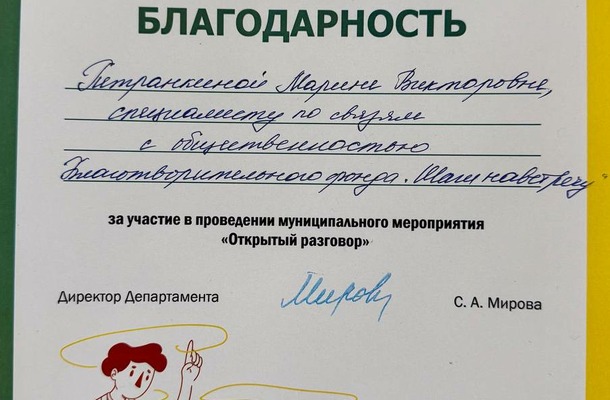 БЛАГОДАРНОСТЬ
Петранкиной Марине Викторовне,
специалисту по связям
с общественностью
Благотворительного фонда "Шаг навстречу"
за участие в проведении муниципального мероприятия
«Открытый разговор»
Директор Департамента Мирова С. А. Мирова